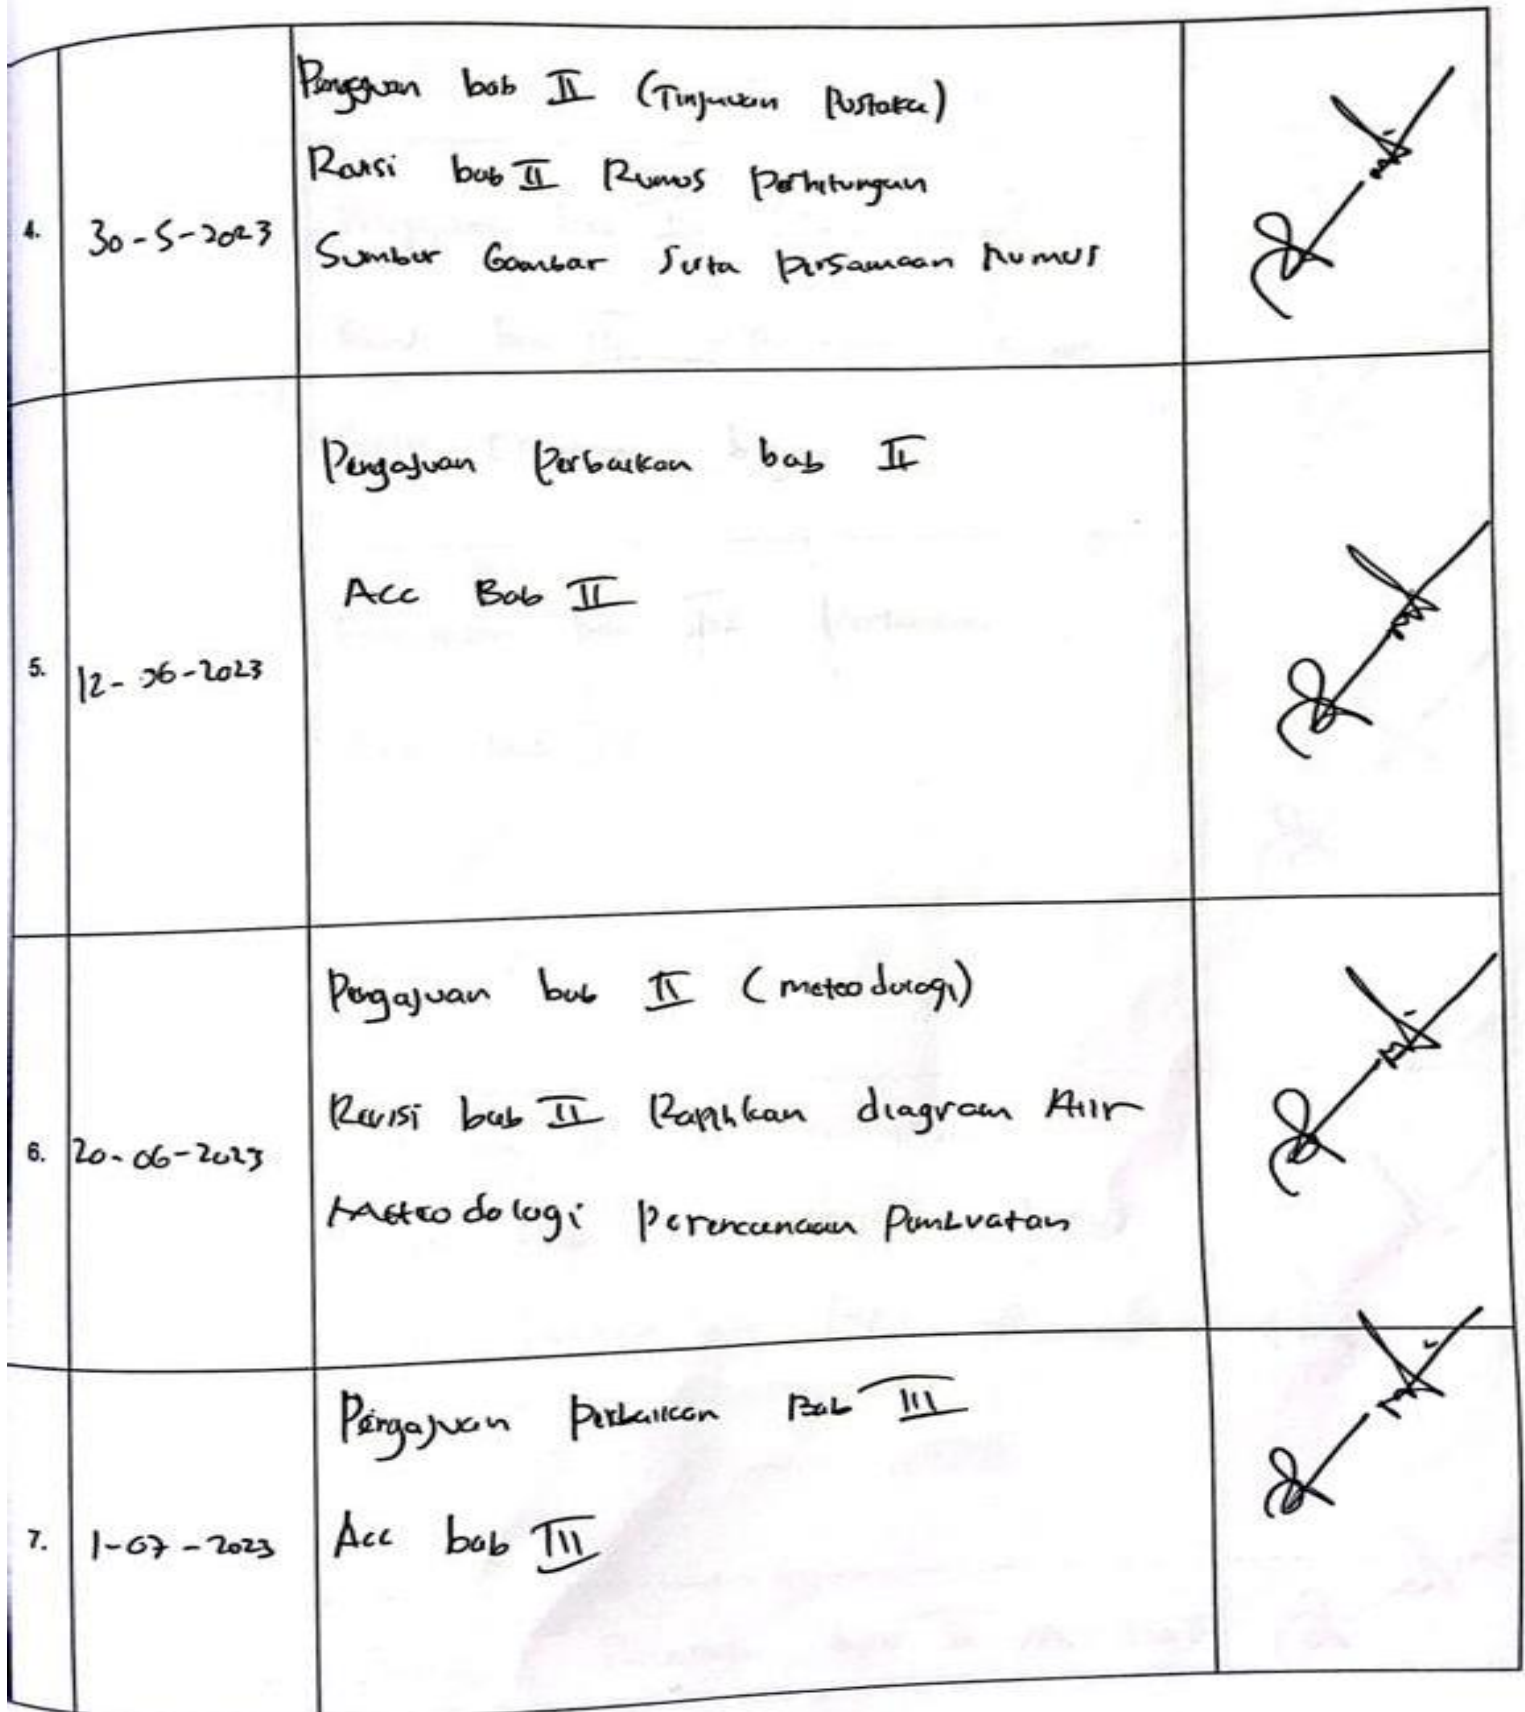 4.
30-5-2023
Pengajuan bab II (Tinjauan Pustaka)
Revisi bab II Rumus Perhitungan
Sumber Gambar Serta persamaan Rumus
5.
12-06-2023
Pengajuan Perbaikan bab II
Acc Bab II
6.
20-06-2023
Pengajuan bab II (meteodologi)
Revisi bab II Rapihkan diagram Alir
Meteodologi Perencanaan Pembuatan
7.
1-07-2023
Pengajuan Perbaikan Bab III
Acc bab III